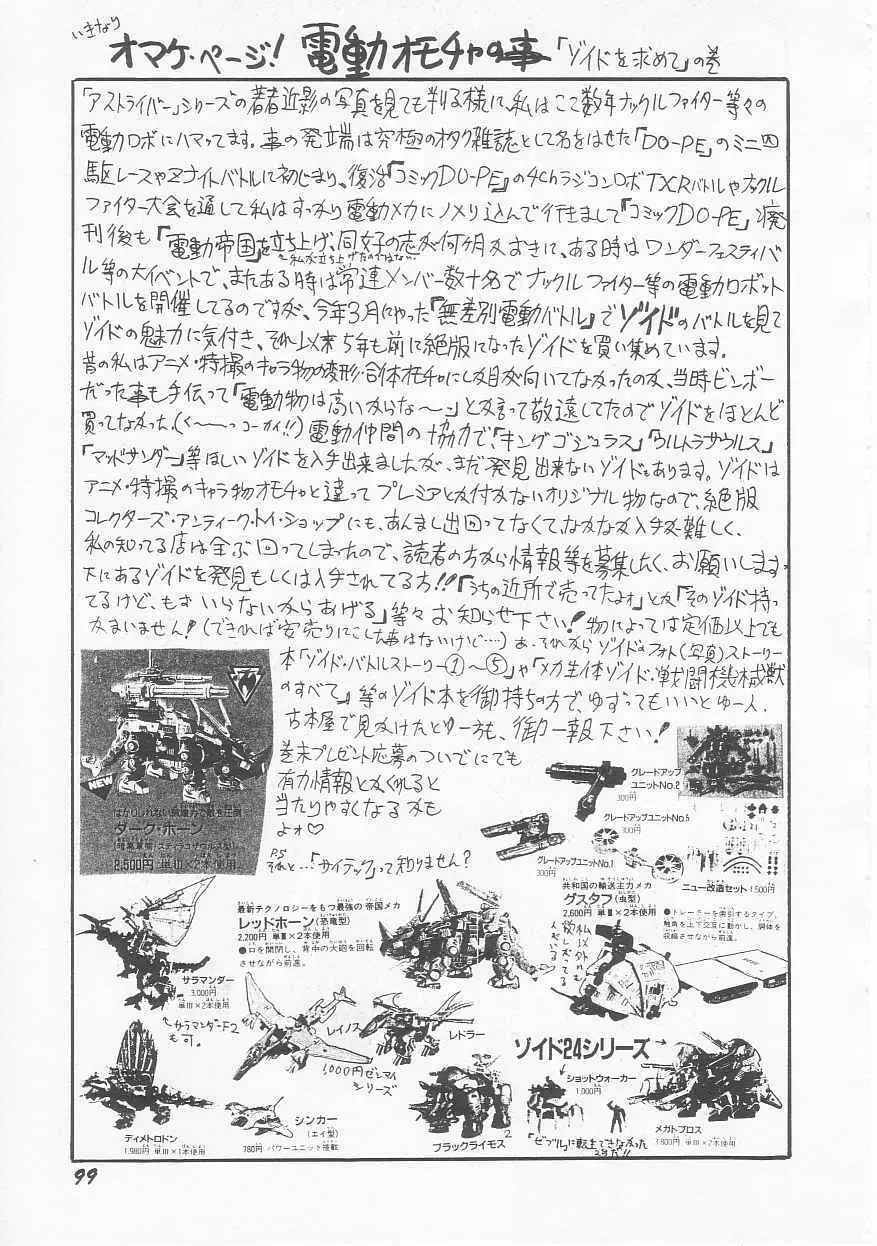 いきなり
オマケ・ページ! 電動オモチャの事「ゾイドを求めて」の巻
「アストライバー」シリーズの著者近影の写真を見ても判る様に、私はここ数年ナックルファイター等々の
電動ロボにハマッてます。事の発端は究極のオタク雑誌として名をはせた「DO-PE」のミニ四
駆レースやZナイトバトルに初じまり、復活『コミックDO-PE』の4chラジコンロボTXRバトルやナックル
ファイター大会を通して私はすっかり電動メカにノメり込んで行きまして『コミックDO-PE』廃
刊後も『電動帝国』を立ち上げ、同好の志が何ヶ月かおきに、ある時はワンダーフェスティバ
私が立ち上げたのではない…
ル等の大イベントで、またある時は常連メンバー数十名でナックルファイター等の電動ロボット
バトルを開催してるのですが、今年3月にやった『無差別電動バトル』でゾイドのバトルを見て
ゾイドの魅力に気付き、それ以来5年も前に絶版になったゾイドを買い集めています。
昔の私はアニメ・特撮のキャラ物の変形・合体オモチャにしか目が向いてなかったのと、当時ビンボー
だった事も手伝って「電動物は高いからな〜〜」とか言って敬遠してたのでゾイドをほとんど
買ってなかった。(く〜〜っコーカイ!!) 電動仲間の協力で、「キングゴジュラス」「ウルトラザウルス」
「マッドサンダー」等ほしいゾイドを入手出来ましたが、まだ発見出来ないゾイドもあります。ゾイドは
アニメ・特撮のキャラ物オモチャと違ってプレミアとか付かないオリジナル物なので、絶版
コレクターズ・アンティーク・トイ・ショップにも、あんまし出回ってなくて、なかなか入手が難しく、
私の知ってる店は全ぶ回ってしまったので、読者の方から情報等を募集したく、お願いします。
下にあるゾイドを発見もしくは入手されてる方!!「うちの近所で売ってたよォ」とか「そのゾイド持っ
てるけど、もぉいらないからあげる」等々お知らせ下さい! 物によっては定価以上でも
かまいません!(できれば安売りにこした事はないけど…) あ、それからゾイドのフォト(写真)ストーリー
本「ゾイド・バトルストーリー①〜⑤」や「メカ生体ゾイド・戦闘機械獣
のすべて」等のゾイド本を御持ちの方で、ゆずってもいいとゆー人、
古本屋で見かけたとゆー方も、御一報下さい!
巻末プレゼント応募のついでにでも
有力情報とかくれると
当たりやすくなるかも
よォ♡
P.S
それと…!「サイテック」って知りません?
NEW
はかりしれない破壊力で敵を圧倒
ダーク・ホーン
(暗黒軍団・スティラコザウルス型)
2,500円 単III×2本使用
グレードアップ
ユニットNo.2
300円
グレードアップユニットNo.5
300円
グレードアップユニットNo.1
300円
ニュー改造セット 1,500円
最新テクノロジーをもつ最強の帝国メカ
レッドホーン(恐竜型)
2,200円 単III×2本使用
●口を開閉し、背中の大砲を回転
させながら前進。
共和国の輸送主力メカ
グスタフ(虫型)
2,600円 単III×2本使用
●トレーラーを索引するタイプ。
触角を上下交互に動かし、胴体を
収縮させながら前進。
サラマンダー
3,000円
単III×2本使用
サラマンダーF2
も可。
レイノス
レドラー
1,000円ゼンマイ
シリーズ
ゾイド24シリーズ
ショットウォーカー
1,000円
メガトプロス
3,800円 単III×2本使用
ディメトロドン
1,980円 単III×1本使用
シンカー
(エイ型)
780円 パワーユニット搭載
ブラックライモス
99